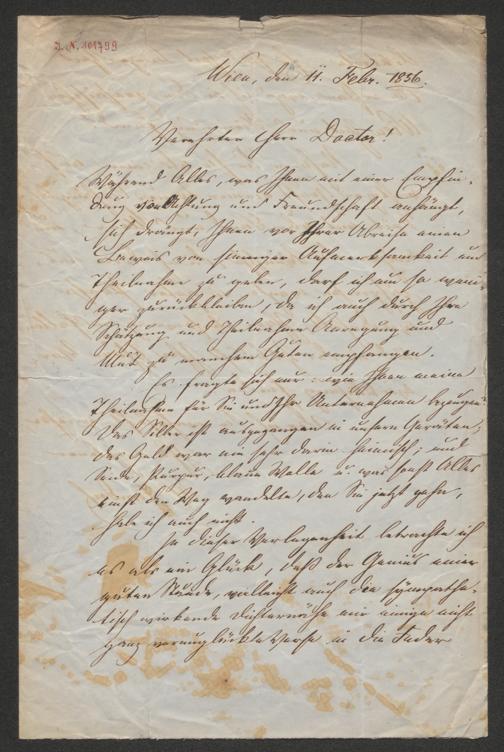 J. N. 101799
Wien, den 11. Febr. 1856.
Verehrter Herr Doctor!
Während Alles, was Ihnen mit einer Empfin-
dung von Achtung und Freundschaft anhängt,
sich drängt, Ihnen vor Ihrer Abreise einen
Beweis von inniger Aufmerksamkeit und
Theilnahme zu geben, darf ich um so weni-
ger zurückbleiben, da ich auch durch Ihre
Schätzung und Theilnahme Anregung und
Mut zu manchem Guten empfangen.
Es fragte sich nur: wie Ihnen meine
Theilnahme für Sie und Ihr Unternehmen bezeugen?
Das Silber ist ausgegangen in unsern Geräten,
das Gold war nie sehr darin heimisch; und
Seide, Purpur, blaue Wolle u. was sonst Alles
einst den Weg wandelte, den Sie jetzt gehn,
habe ich auch nicht.
In dieser Verlegenheit betrachte ich
es als ein Glück, daß der Genius einer
guten Stunde, vielleicht auch die sympathe-
tisch wirkende Dichternähe mir einige nicht
ganz verunglückte Verse in die Feder